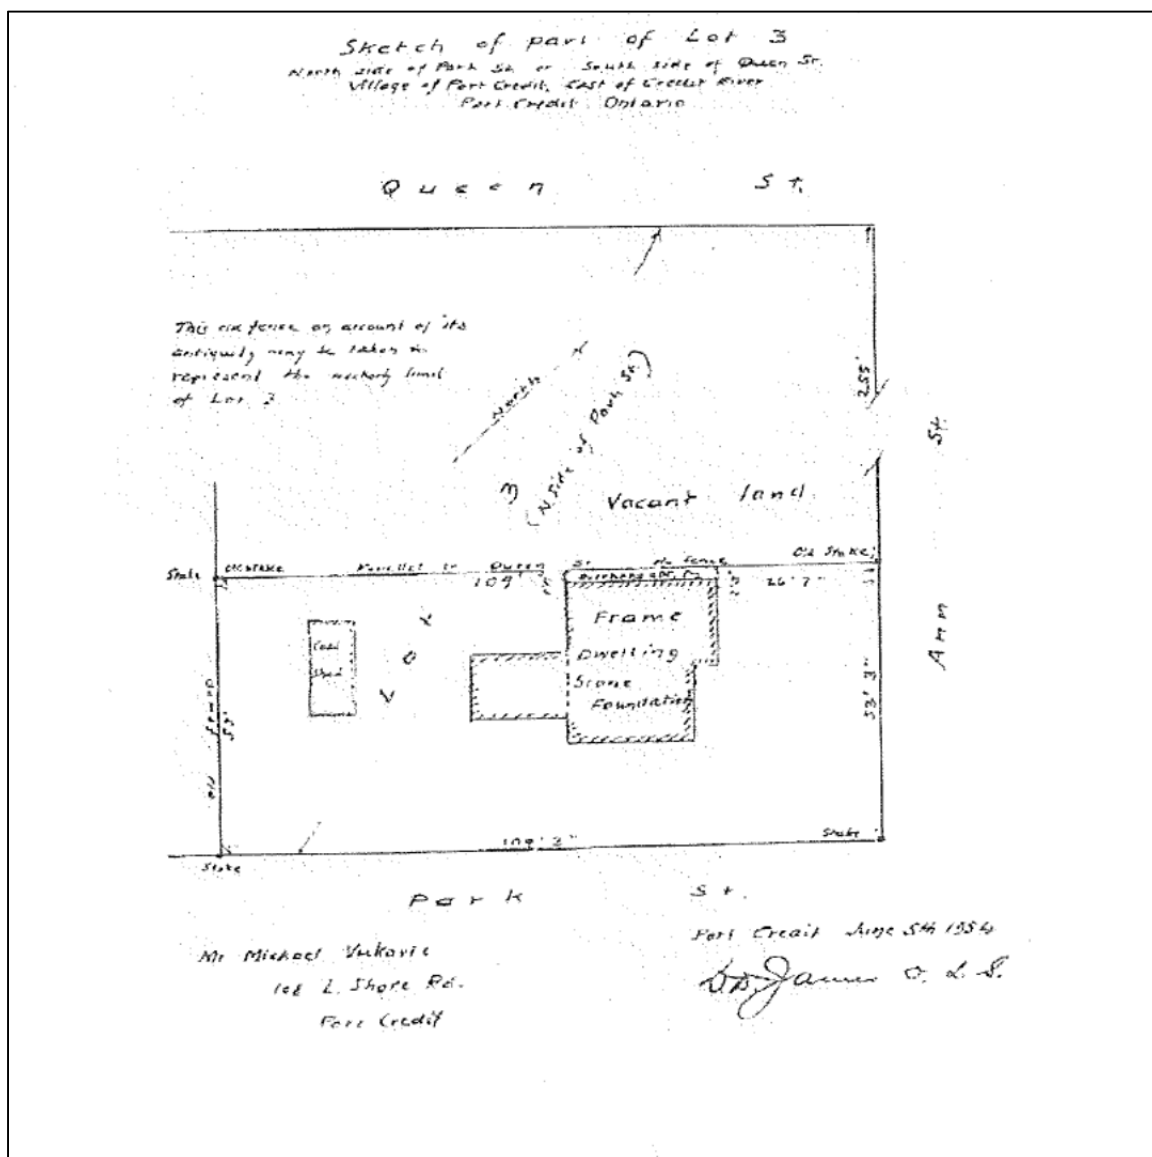 Sketch of part of Lot 3
North side of Park St. or South side of Queen St.
Village of Port Credit, East of Credit River
Port Credit Ontario
Queen St.
This fence on account of its
antiquity may be taken to
represent the limit
of Lot 3
North
3
(N Side of Park St.)
255'
Ann St.
Vacant land
Stake
Old Stake
Parallel to Queen St. No fence
Old Stake
109'
26' 7"
Frame
Dwelling
Stone
Foundation
Coal
Shed
LOT
53' 3"
Old
53'
109' 3"
Stake
Stake
Park St.
Mr Michael Vukovic
108 L. Shore Rd.
Port Credit
Port Credit June 5th 1954
O. L. S.